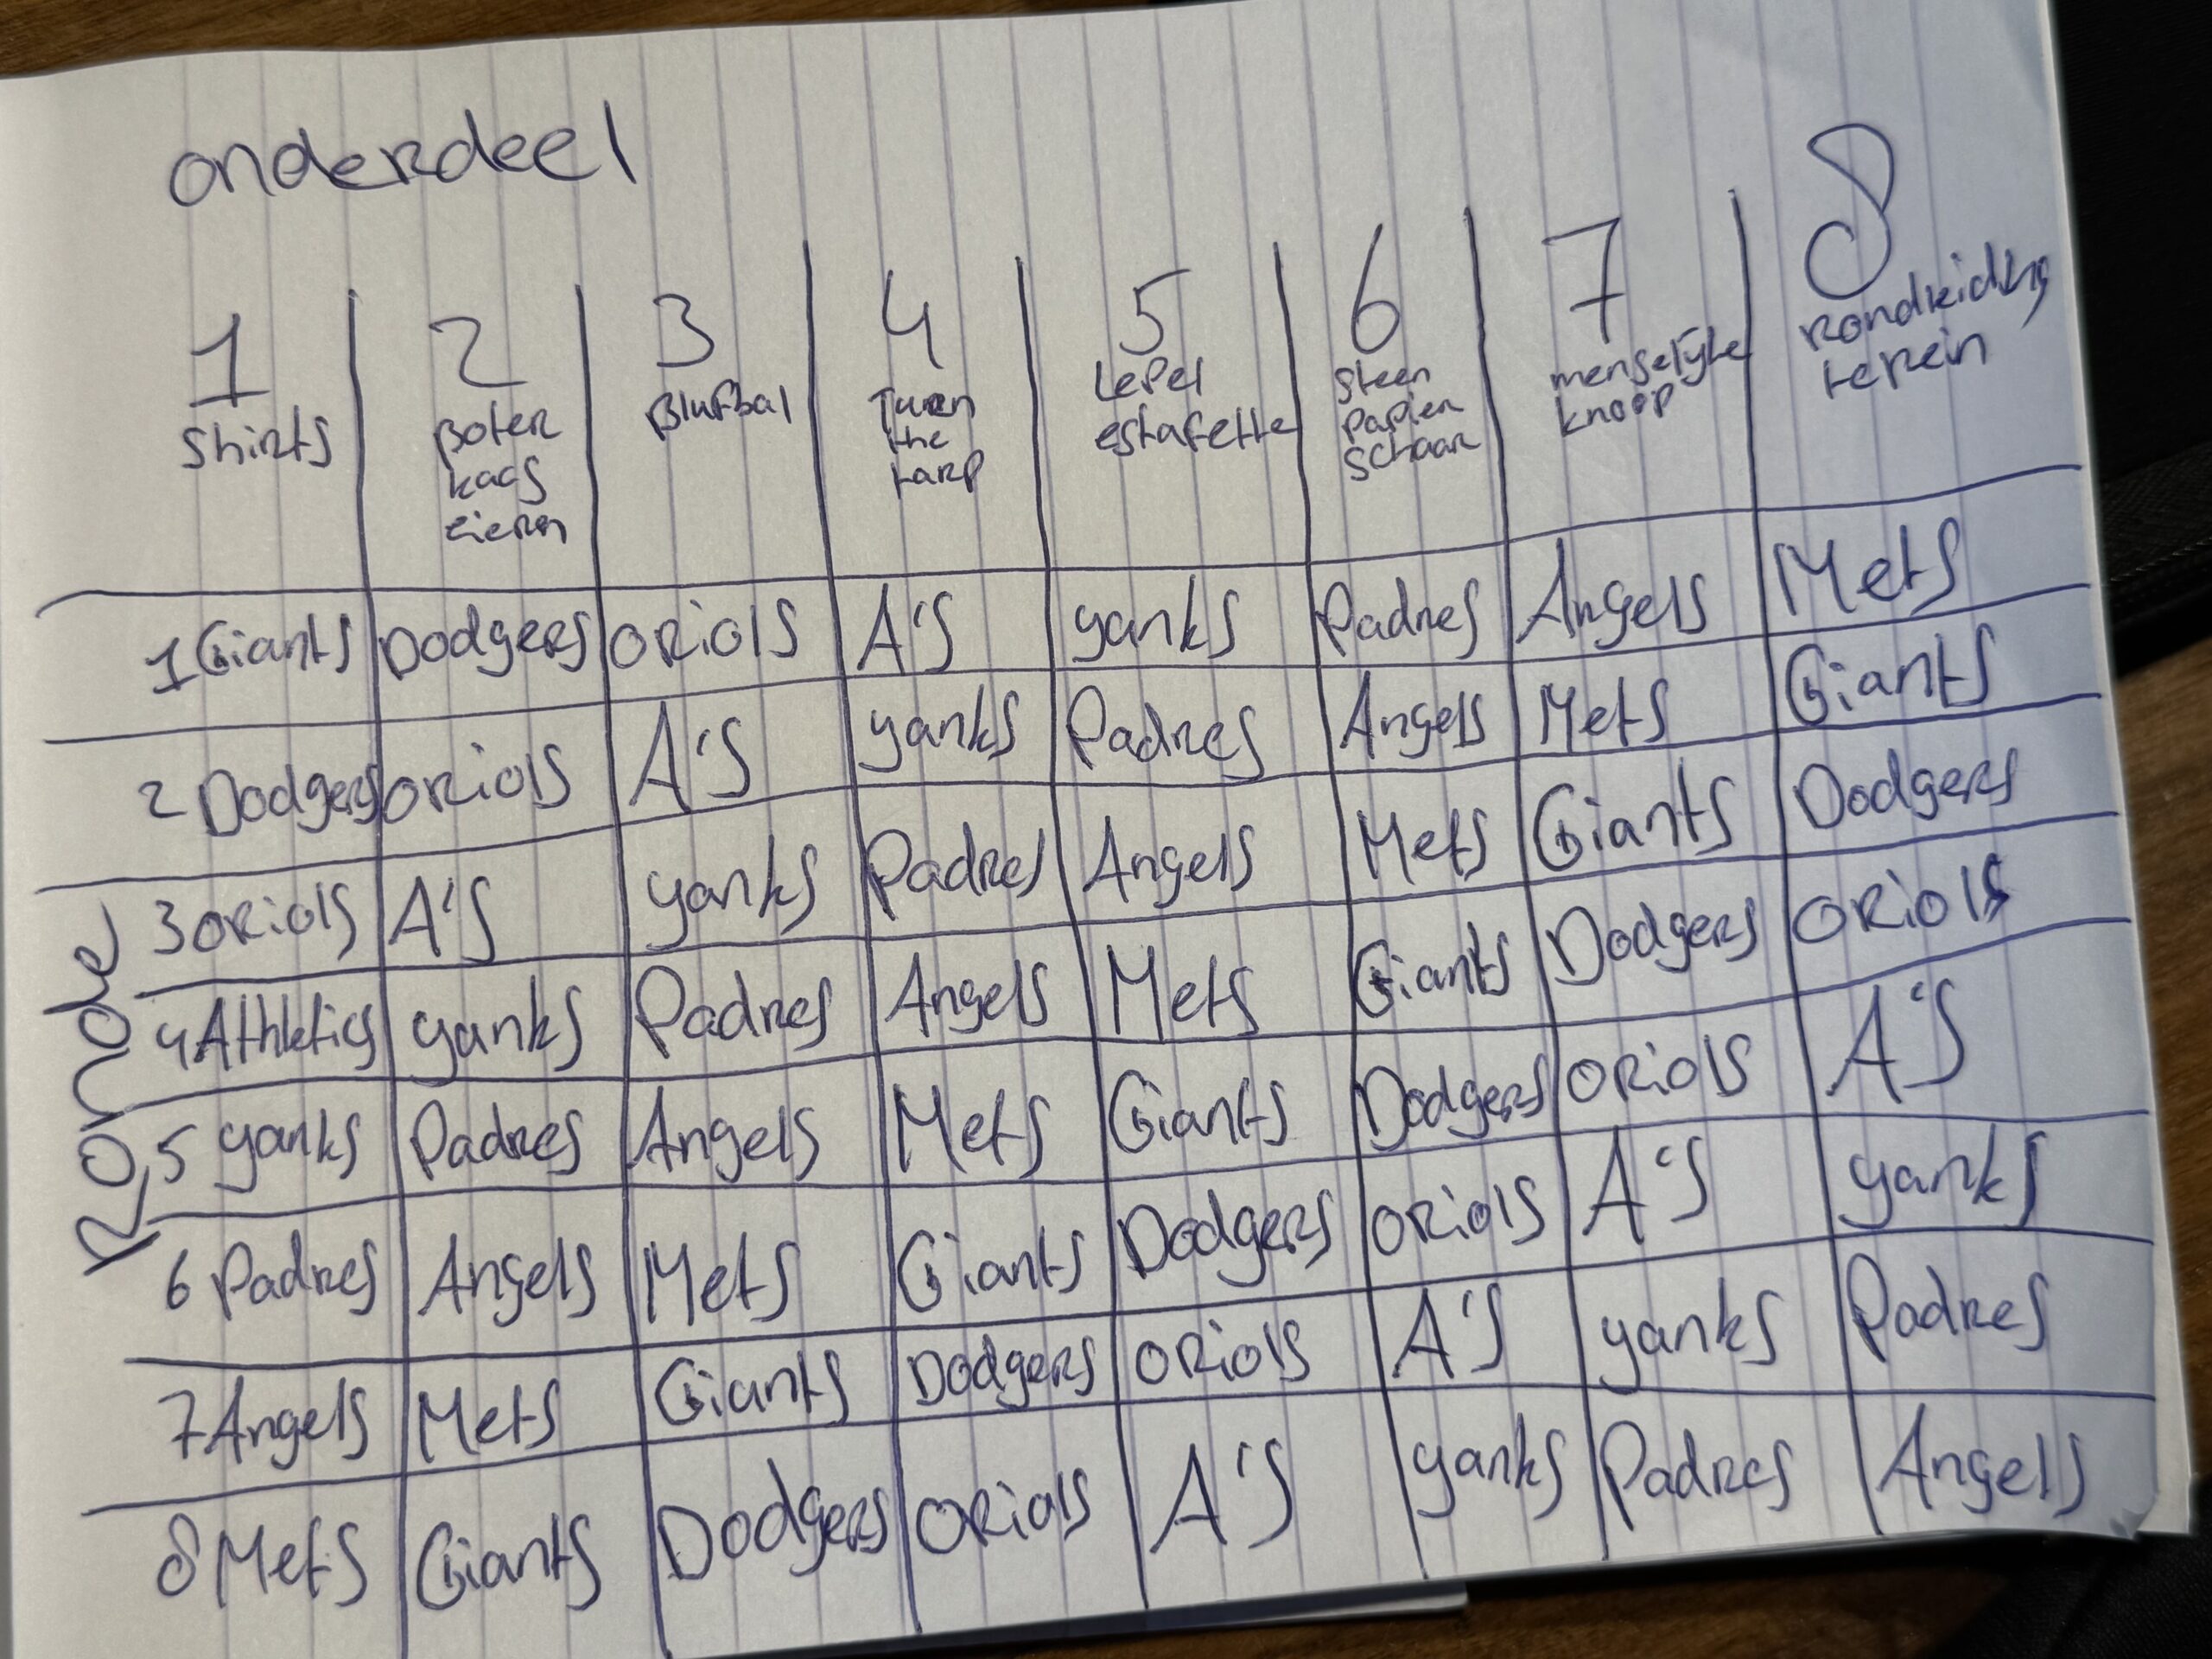 onderdeel
1 2 3 4 5 6 7 8
shirts Boter kaas eieren Blufbal Turn the tarp Lepel estafette Steen papier schaar menselijke knoop rondleiding terein
Ronde
1 Giants Dodgers Oriols A'S yanks Padres Angels Mets
2 Dodgers Oriols A'S yanks Padres Angels Mets Giants
3 Oriols A'S yanks Padres Angels Mets Giants Dodgers
4 Athletics yanks Padres Angels Mets Giants Dodgers Oriols
5 yanks Padres Angels Mets Giants Dodgers Oriols A'S
6 Padres Angels Mets Giants Dodgers Oriols A'S yanks
7 Angels Mets Giants Dodgers Oriols A'S yanks Padres
8 Mets Giants Dodgers Oriols A'S yanks Padres Angels